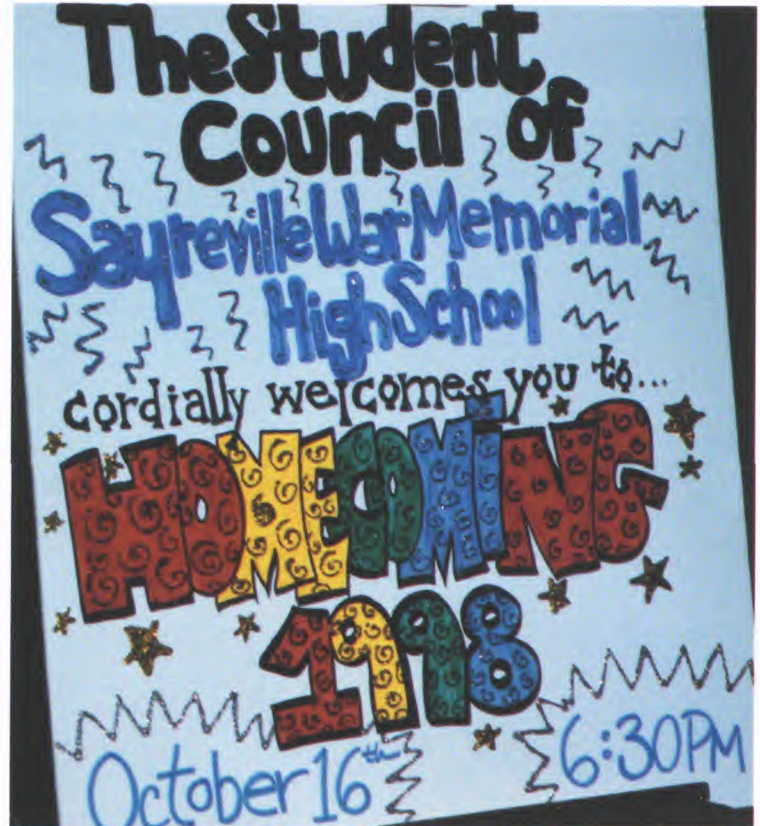 The Student
Council of
Sayreville War Memorial
High School
cordially welcomes you to...
HOMECOMING
1998
October 16th 6:30PM